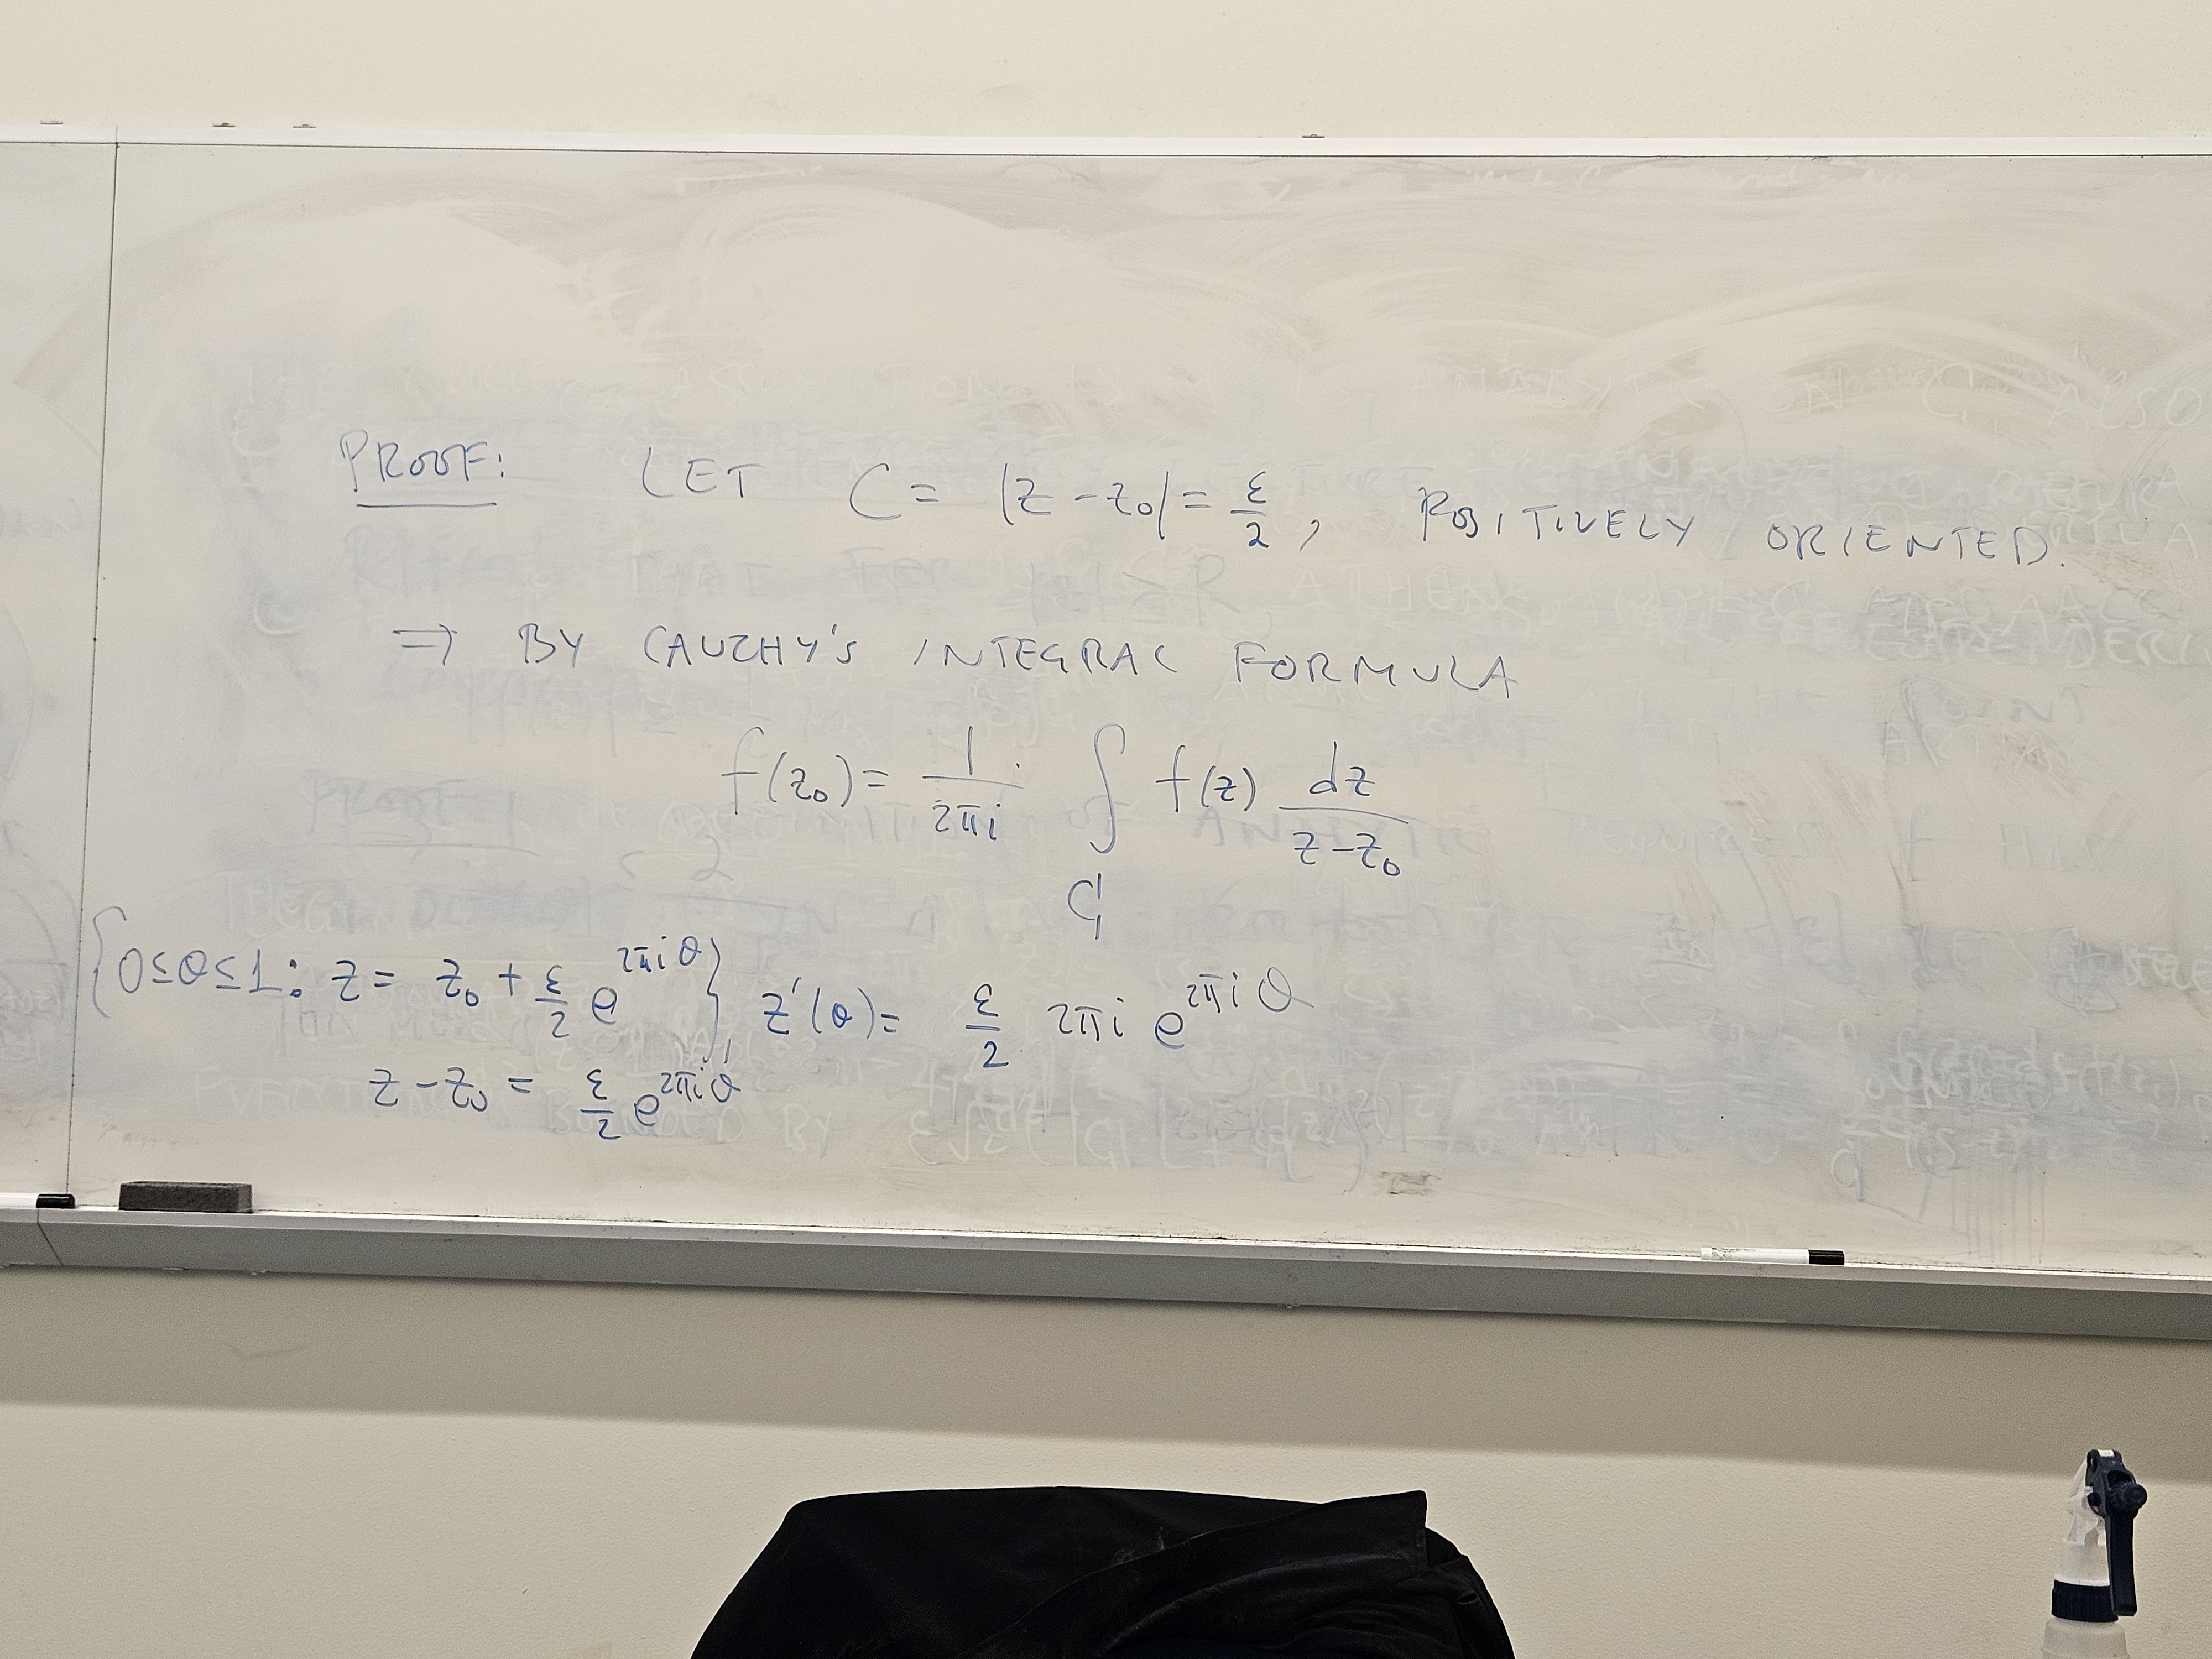 PROOF: LET C = |z - z₀| = ε/2, POSITIVELY ORIENTED.
⇒ BY CAUCHY'S INTEGRAL FORMULA
f(z₀) = 1/(2πi) ∫_C f(z) dz/(z - z₀)
{0 ≤ θ ≤ 1: z = z₀ + ε/2 e^(2πiθ)} z'(θ) = ε/2 2πi e^(2πiθ)
z - z₀ = ε/2 e^(2πiθ)